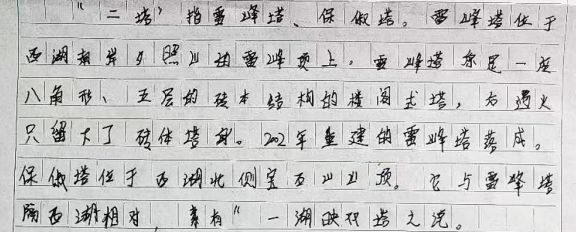 “二塔”指雷峰塔、保俶塔。雷峰塔位于
西湖南岸夕照山的雷峰顶上。雷峰塔原是一座
八角形、五层的砖木结构的楼阁式塔，后遇火
只留下了砖体塔身。2002年重建的雷峰塔落成。
保俶塔位于西湖北侧宝石山山顶。它与雷峰塔
隔西湖相对，素有“一湖映双塔之说。